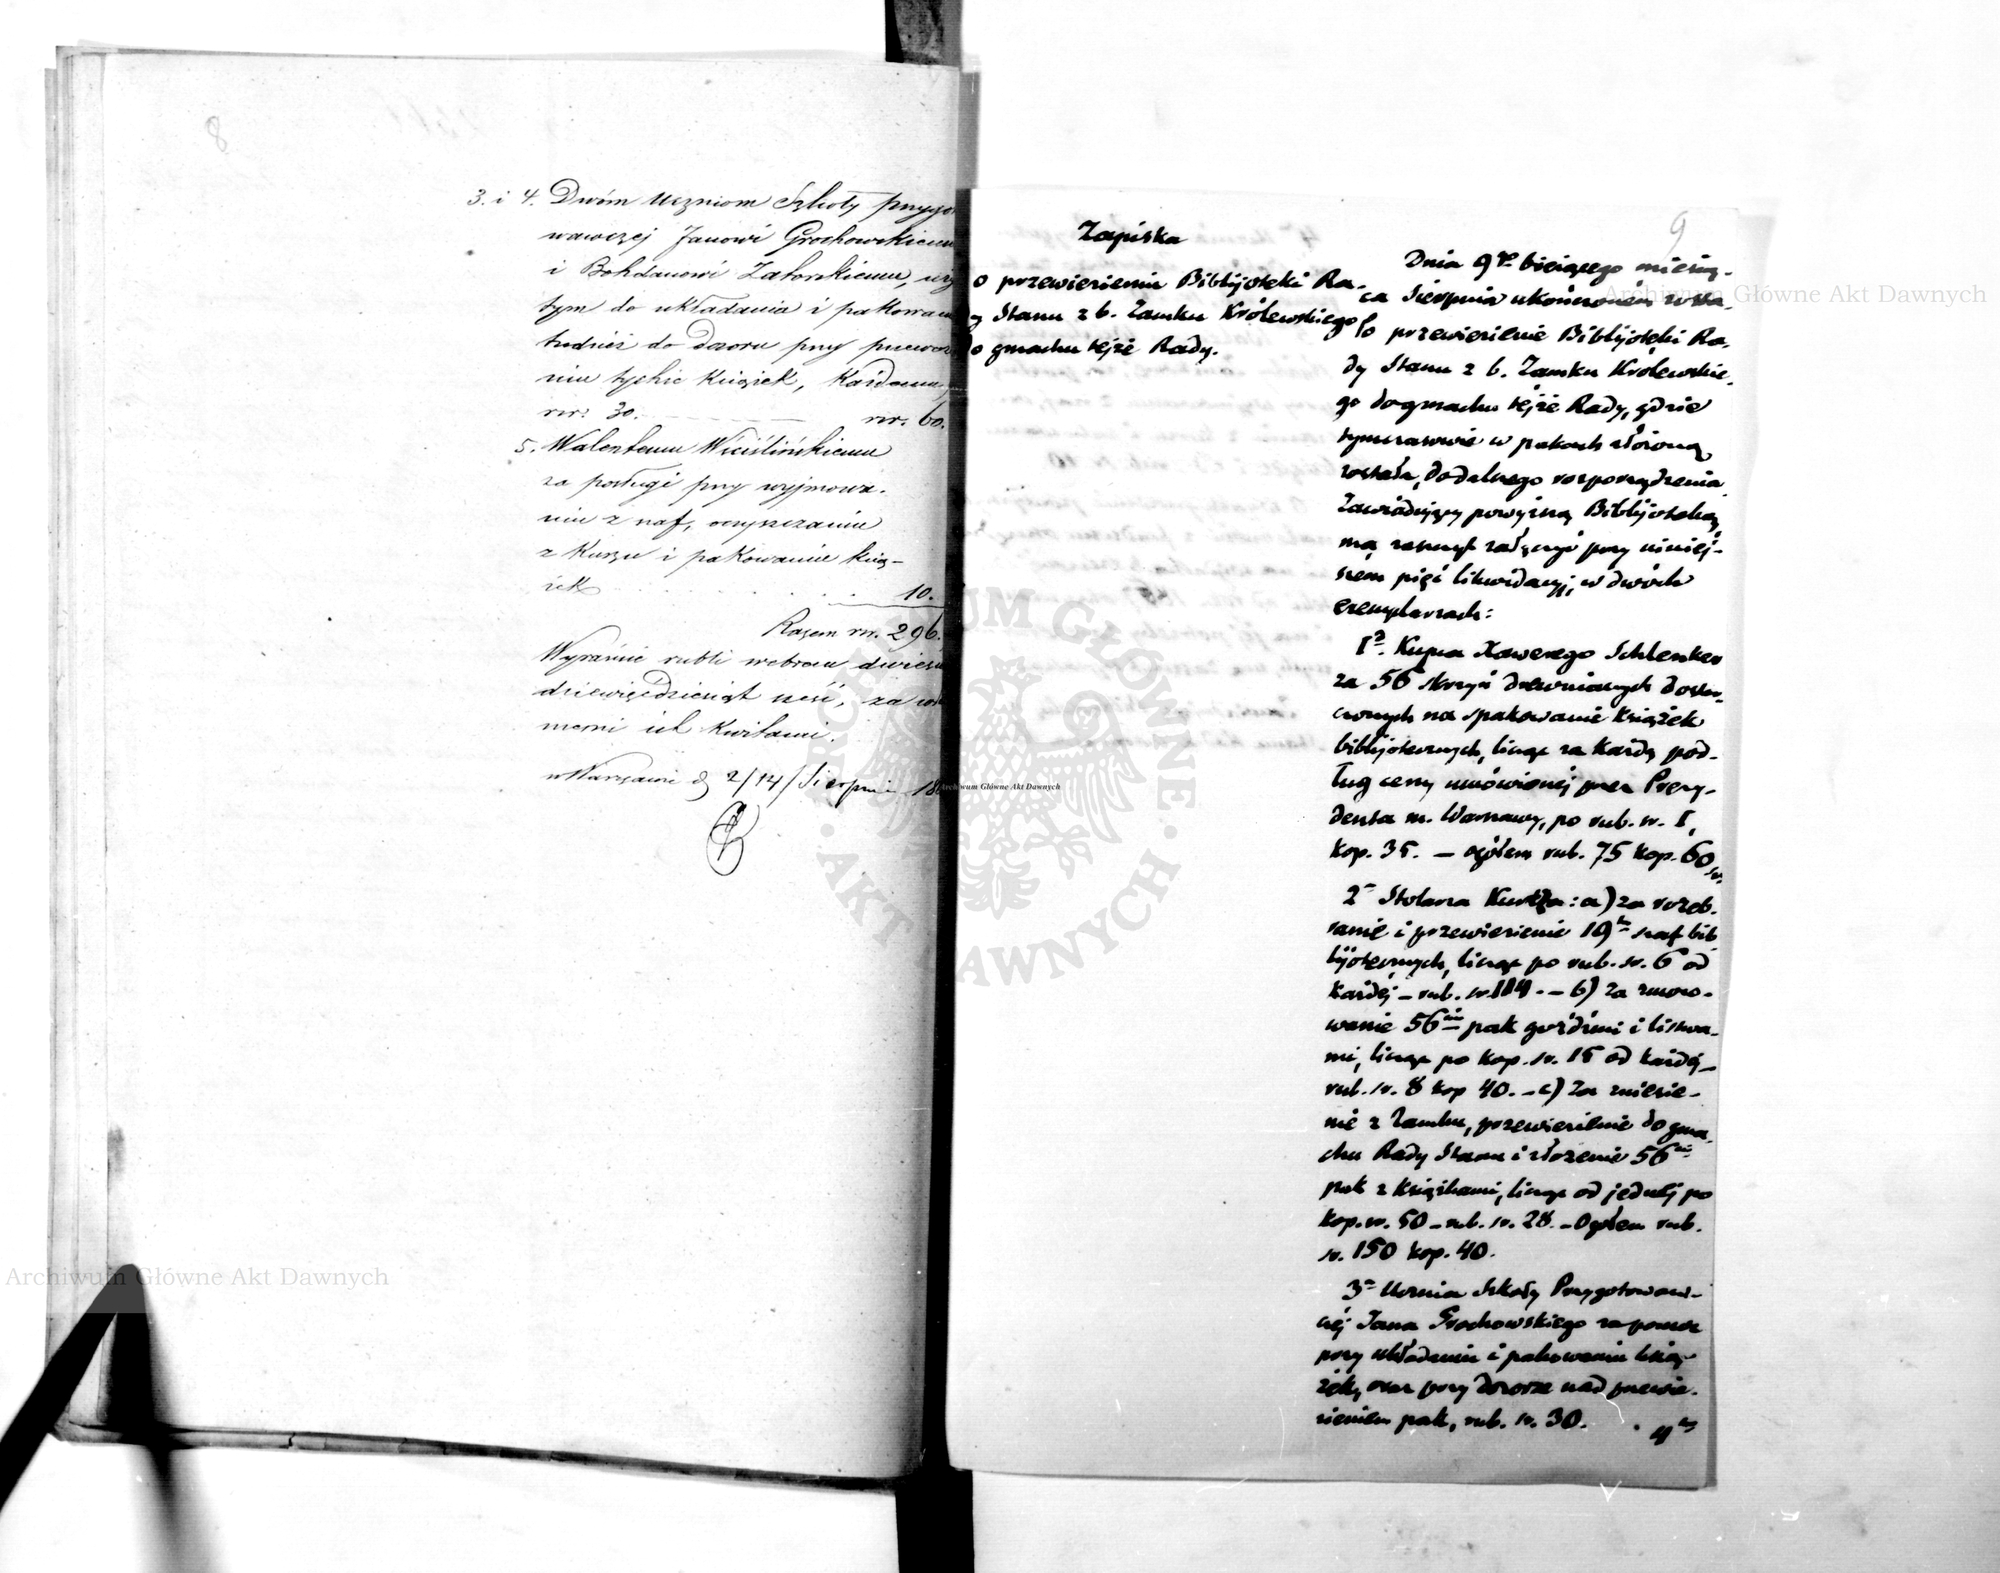 8
3. i 4. Dwóm Uczniom Szkoły przygo
wawczej Janowi Grochowskiemu
i Bohdanowi Zatorskiemu, uży
tym do układania i pakowan
tudzież do dozoru przy przewo
niu tychże książek, Każdemu
rsr: 30. rsr. 60.
5. Walentemu Wiciślińskiemu
za posługi przy wyjmowa-
niu z szaf, oczyszczaniu
z Kurzu i pakowanie ksią-
żek 10.
Razem rsr. 296.
Wyraźnie rubli srebrem dwieście
dziewięćdziesiąt sześć, za
memi ich Kwitami.
w Warszawie d 2/14/ Sierpnia 18
9
Zapiska
o przewiezieniu Biblijoteki Ra-
y Stanu z b. Zamku Królewskiego
do gmachu tejże Rady.
Dnia 9go bieżącego miesią-
ca Sierpnia ukończonem zosta-
ło przewiezienie Biblijoteki Ra-
dy Stanu z b. Zamku Królewskie-
go do gmachu tejże Rady, gdzie
tymczasowie w pakach złożoną
została, do dalszego rozporządzenia.
Zawiadujący powyższą Biblijoteką,
ma zaszczyt załączyć przy niniej-
szem pięć likwidacyj, w dwóch
exemplarzach:
1o. Kupca Xawerego Schlenker
za 56 skrzyń drewnianych dostar-
czonych na spakowanie Książek
biblijotecznych, licząc za Każdą pod-
ług ceny umówionej przez Prezy-
denta m. Warszawy, po rub. sr. 1,
kop. 35. — ogółem rub. 75 kop. 60 sr.
2o Stolarza Kurtza: a) za rozeb-
ranie i przewiezienie 19tu szaf bib
lijotecznych, licząc po rub. sr. 6 od
każdej — rub. sr. 114. — b) za
wanie 56ciu pak gwoździami i listwa-
mi, licząc po kop. sr. 15 od każdej —
rub. sr. 8 kop 40. — c) Za zniesie-
nie z Zamku, przewiezienie do gma-
chu Rady Stanu i złożenie 56ciu
pak z Książkami, licząc od jednej po
kop. sr. 50 — rub. sr. 28. — Ogółem rub.
sr. 150 kop. 40.
3o Ucznia Szkoły Przygotowaw-
czej Jana Grochowskiego za pomoc
przy układaniu i pakowaniu ksią-
żek, oraz przy dozorze nad przewie-
zieniem pak, rub. sr. 30.
4o
Archiwum Główne Akt Dawnych
Archiwum Główne Akt Dawnych
Archiwum Główne Akt Dawnych
ARCHIWUM GŁÓWNE · AKT DAWNYCH ·